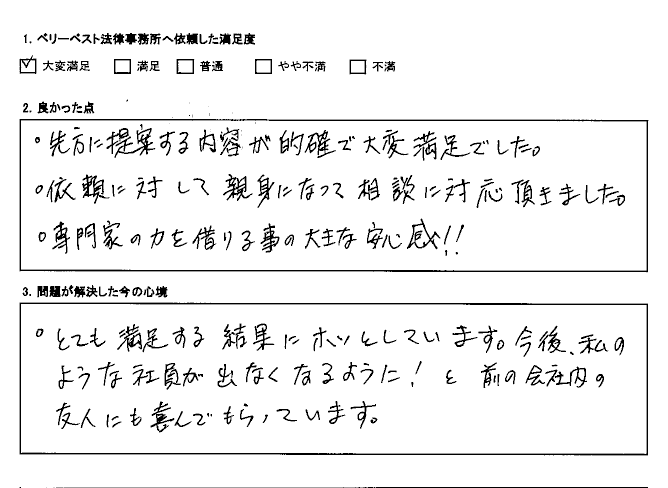 1. ベリーベスト法律事務所へ依頼した満足度
☑ 大変満足 □ 満足 □ 普通 □ やや不満 □ 不満
2. 良かった点
○先方に提案する内容が的確で大変満足でした。
○依頼に対して親身になって相談に対応頂きました。
○専門家の力を借りる事の大きな安心感!!
3. 問題が解決した今の心境
○とても満足する結果にホッとしています。今後、私の
ような社員が出なくなるように!と前の会社内の
友人にも喜んでもらっています。